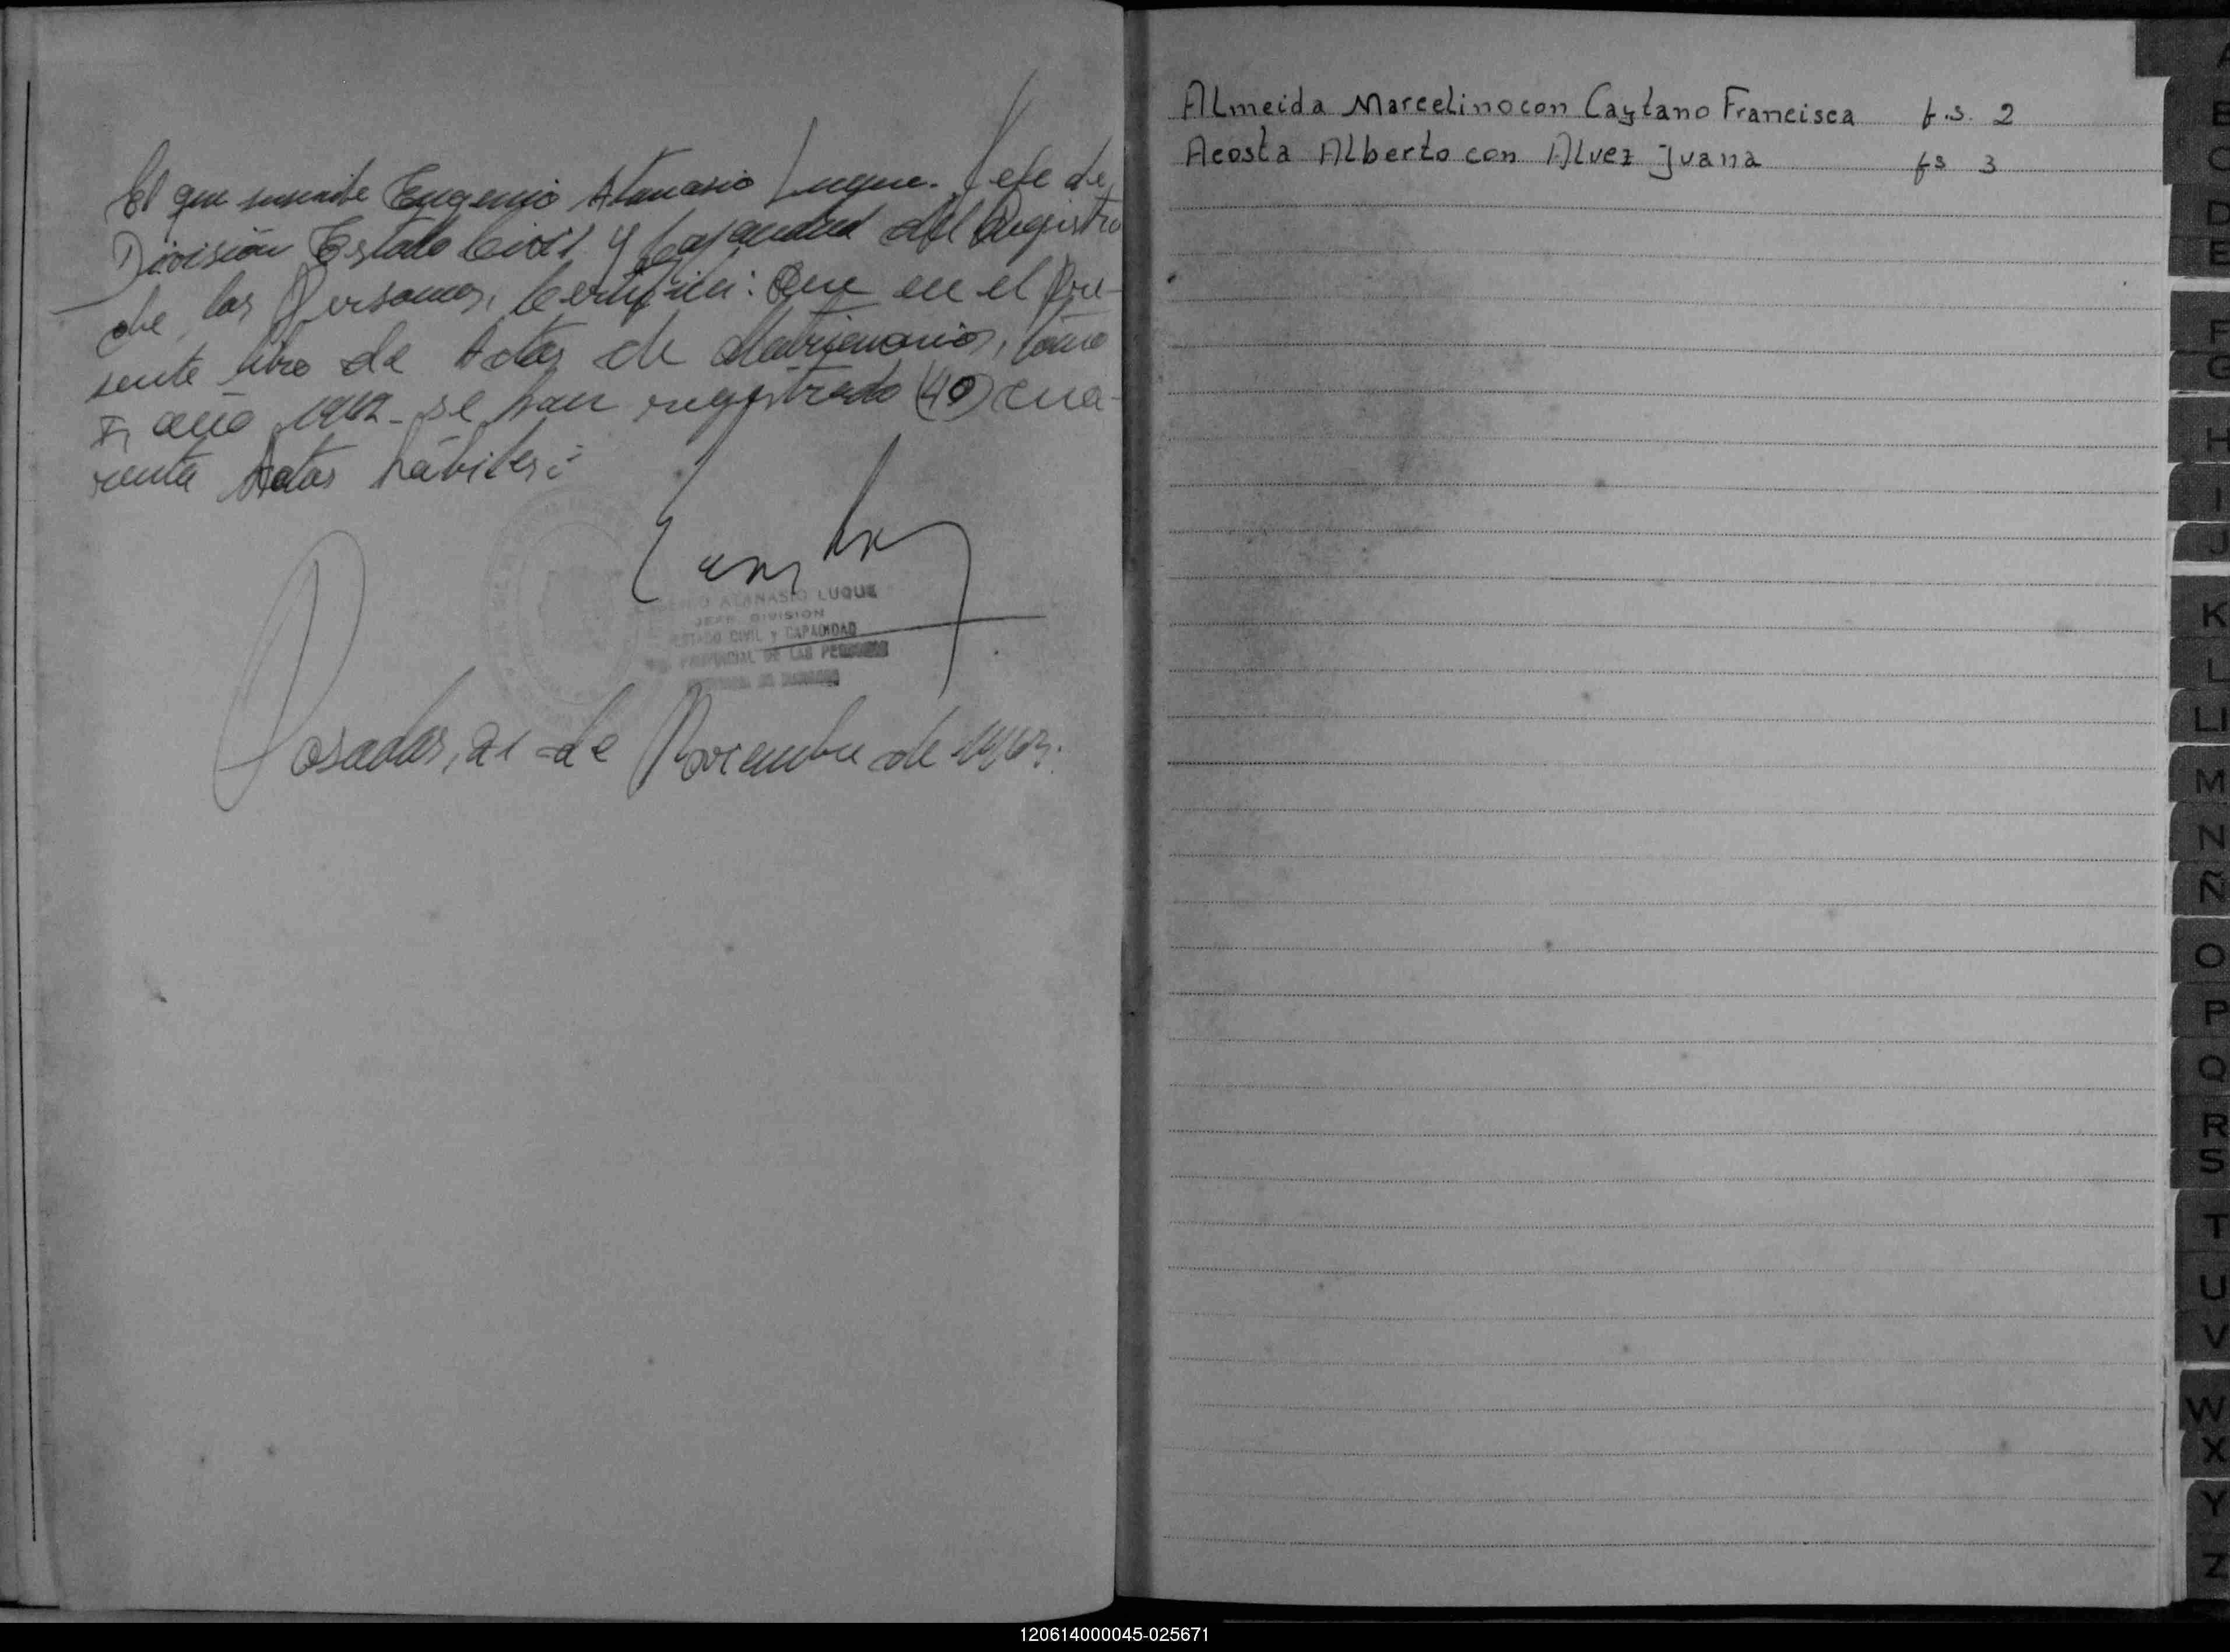 El que suscribe Eugenio Atanasio Luque. Jefe de
División Estado Civil y Capacidad del Registro
de las Personas, Certifica: Que en el Pre-
sente libro de Actas de Matrimonios, tomo
I, año 1962 - se han registrado (40) cua-
renta Actas hábiles:
ATANASIO LUQUE
JEFE DIVISION
ESTADO CIVIL y CAPACIDAD
PROVINCIAL DE LAS PERSONAS
Posadas, 21 de Noviembre de 1963.
Almeida Marcelino con Caytano Francisca f.s. 2
Acosta Alberto con Alvez Juana fs 3
A
B
C
D
E
F
G
H
I
J
K
L
Ll
M
N
Ñ
O
P
Q
R
S
T
U
V
W
X
Y
Z
120614000045-025671